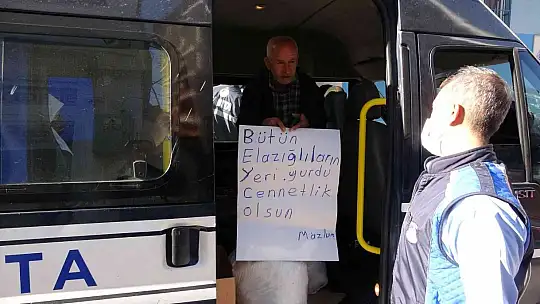 Bütün
Elazığlıların
Yeri.yurdu
Cennetlik
olsun
Mazlum
TA